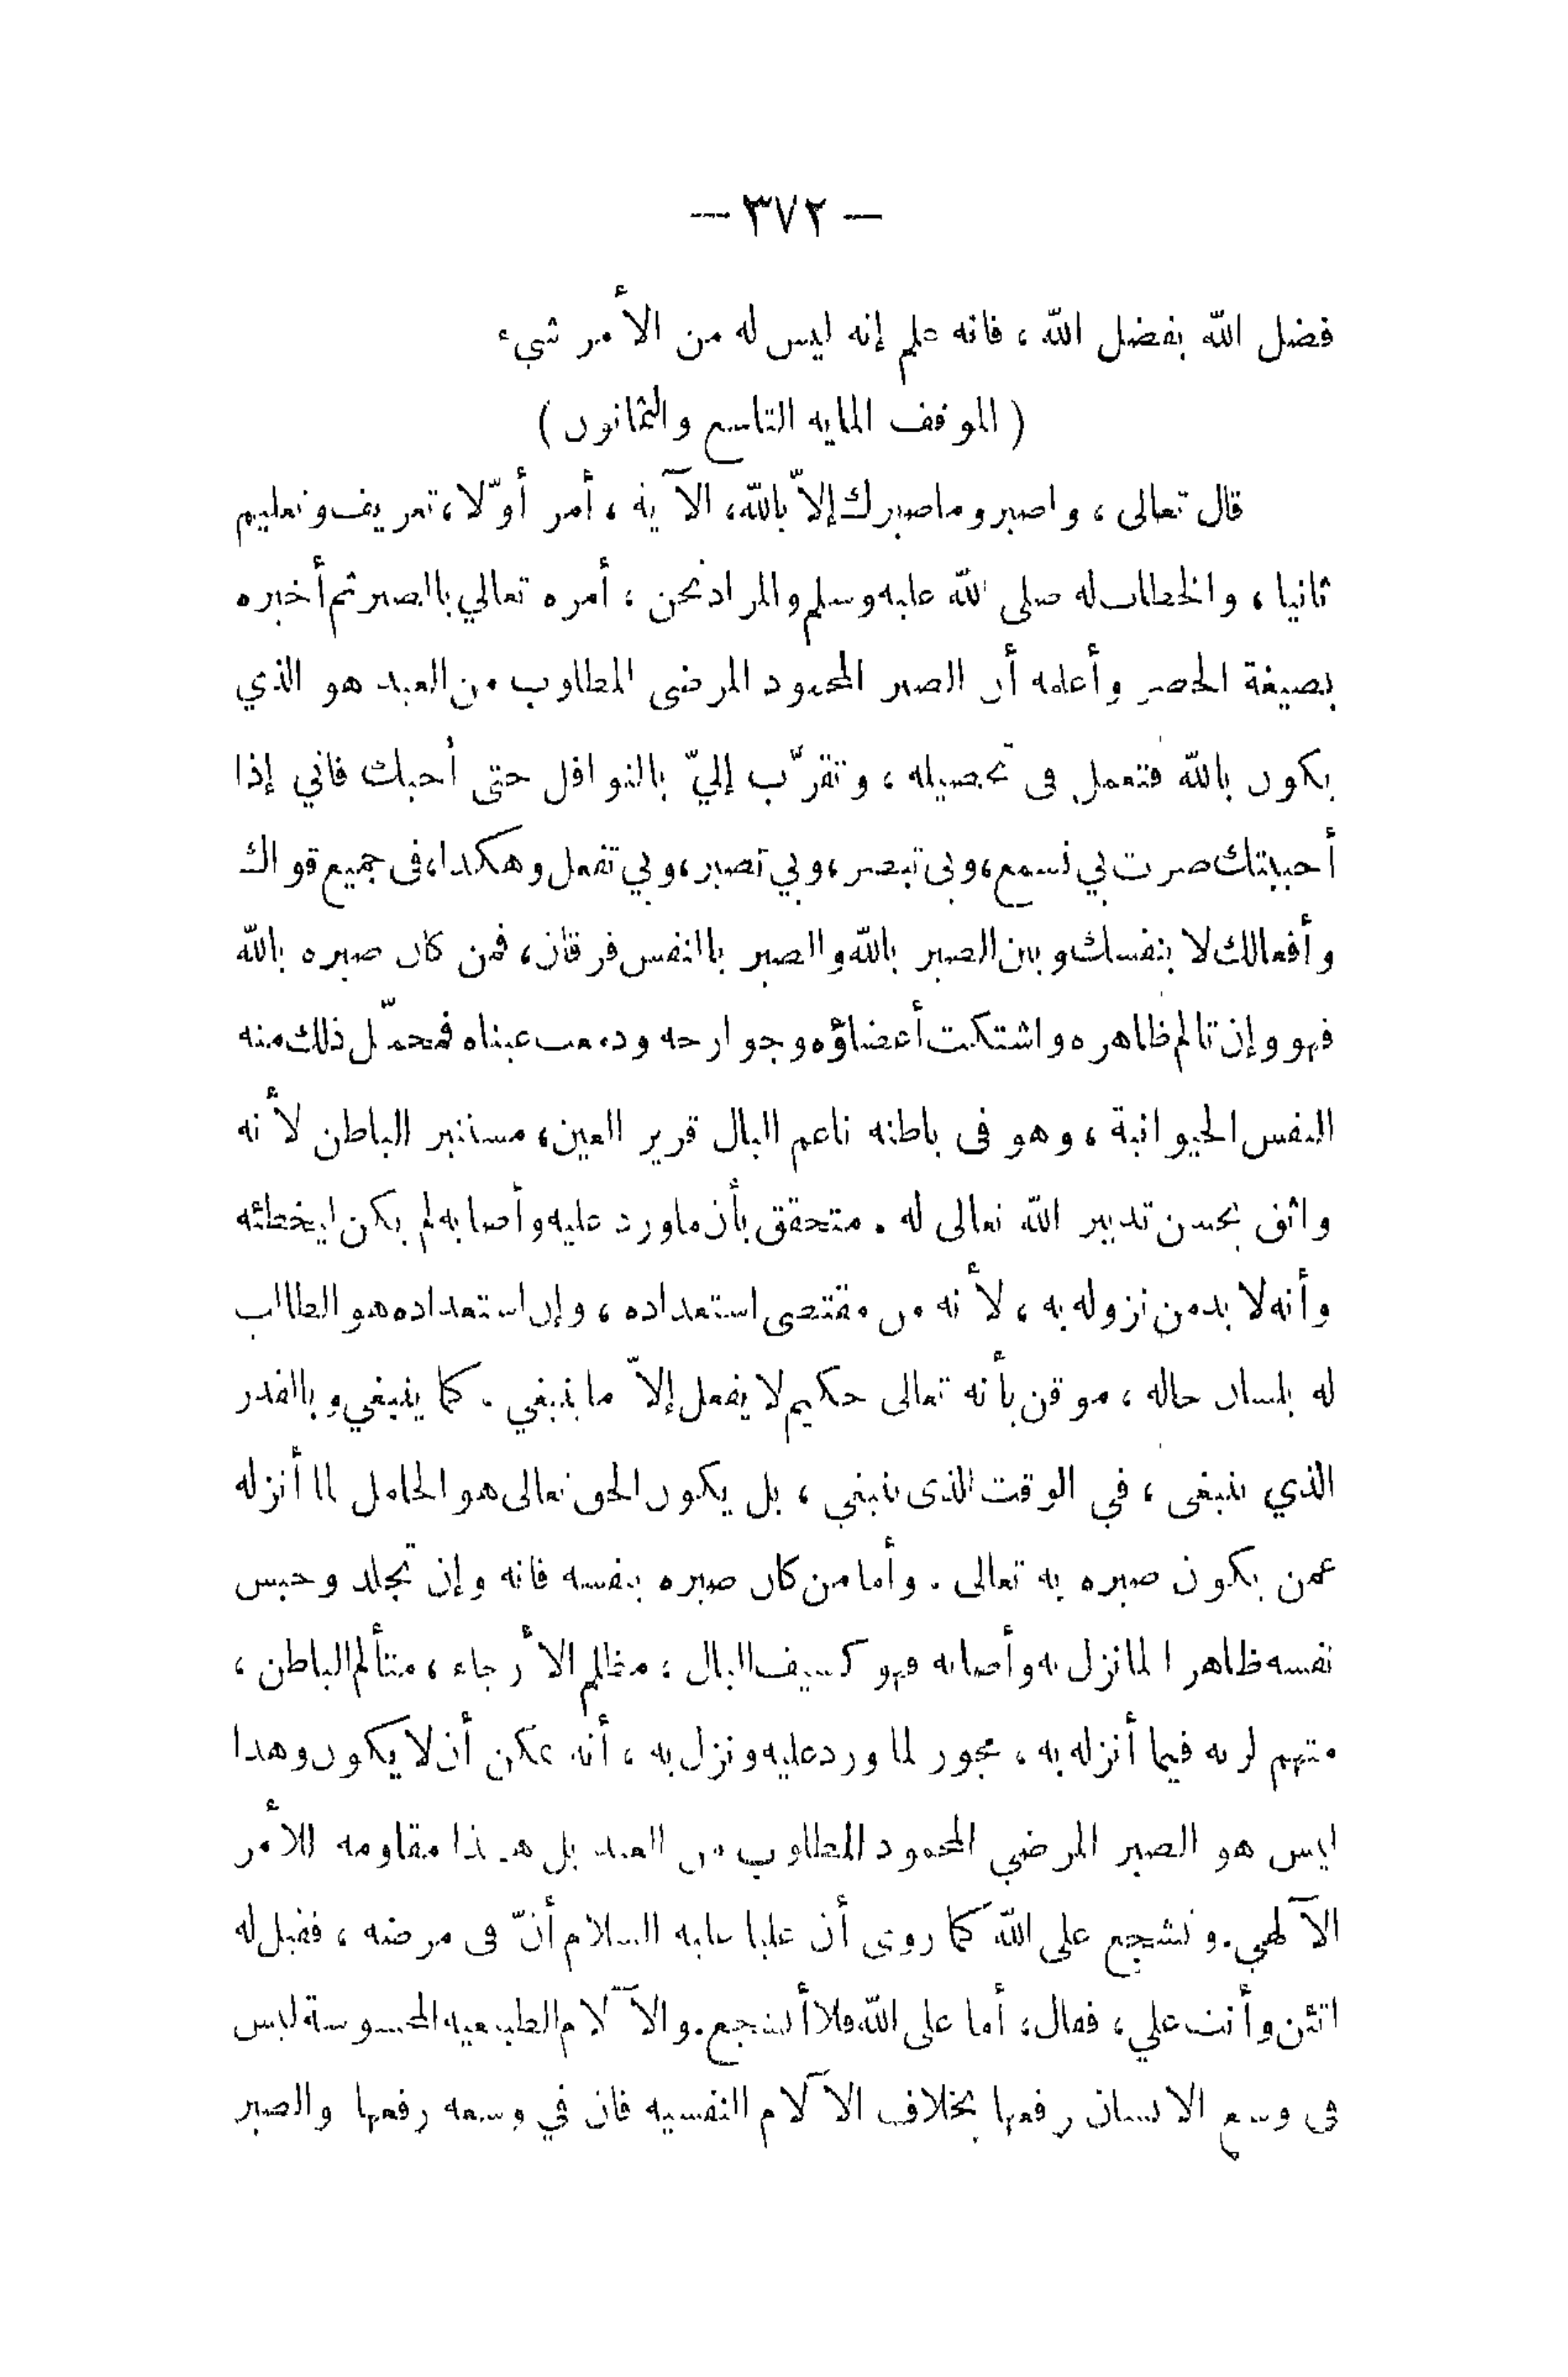 — ٣٧٢ —
فضل الله بفضل الله ، فانه علم إنه ليس له من الأمر شيء
( الموقف المايه التاسع والثمانون )
قال تعالى ، واصبر وما صبرك إلاّ بالله، الآية ، أمر أوّلا، تعريف وتعليم
ثانيا ، والخطاب له صلى الله عليه وسلم والمراد نحن ، أمره تعالي بالصبر ثم أخبره
بصيغة الحصر وأعلمه أن الصبر المحمود المرضى المطلوب من العبد هو الذي
يكون بالله فتعمل فى تحصيله ، وتقرّب إليّ بالنوافل حتى أحبك فاني إذا
أحببتك صرت بي تسمع، وبى تبصر، وبي تصبر، وبي تفعل وهكدا، فى جميع قواك
وأفعالك لا بنفسك وبين الصبر بالله والصبر بالنفس فرقان، فمن كان صبره بالله
فهو وإن تالم ظاهره واشتكت أعضاؤه وجوارحه ودمعت عيناه فمحمّل ذلك منه
النفس الحيوانية ، وهو فى باطنه ناعم البال قرير العين، مستنير الباطن لأنه
واثق بحسن تدبير الله تعالى له . متحقق بأن ما ورد عليه وأصابه لم يكن ليخطئه
وأنه لا بد من نزوله به ، لأنه من مقتضى استعداده ، وإن استعداده هو الطالب
له بلسان حاله ، موقن بأنه تعالى حكيم لا يفعل إلاّ ما ينبغي . كما ينبغي وبالقدر
الذي ينبغى ، في الوقت الذى ينبغي ، بل يكون الحق تعالى هو الحامل لما أنزله
عمن يكون صبره به تعالى . وأما من كان صبره بنفسه فانه وإن تجلد وحبس
نفسه ظاهرا لما نزل به وأصابه فهو كسيف البال ، مظلم الأرجاء ، متألم الباطن ،
متهم لربه فيما أنزله به ، مجور لما ورد عليه ونزل به ، أنه يمكن أن لا يكون وهدا
ليس هو الصبر المرضي المحمود المطلوب من العبد بل هـذا مقاومه للأمر
الآلهي. وتشجع على الله كما روى أن عليا عليه السلام أنّ فى مرضه ، فقيل له
اتئن وأنت علي ، فقال ، أما على الله فلا أتشجع. والآلام الطبيعيه المحسوسة ليس
فى وسع الانسان رفعها بخلاف الآلام النفسيه فان في وسعه رفعها والصبر